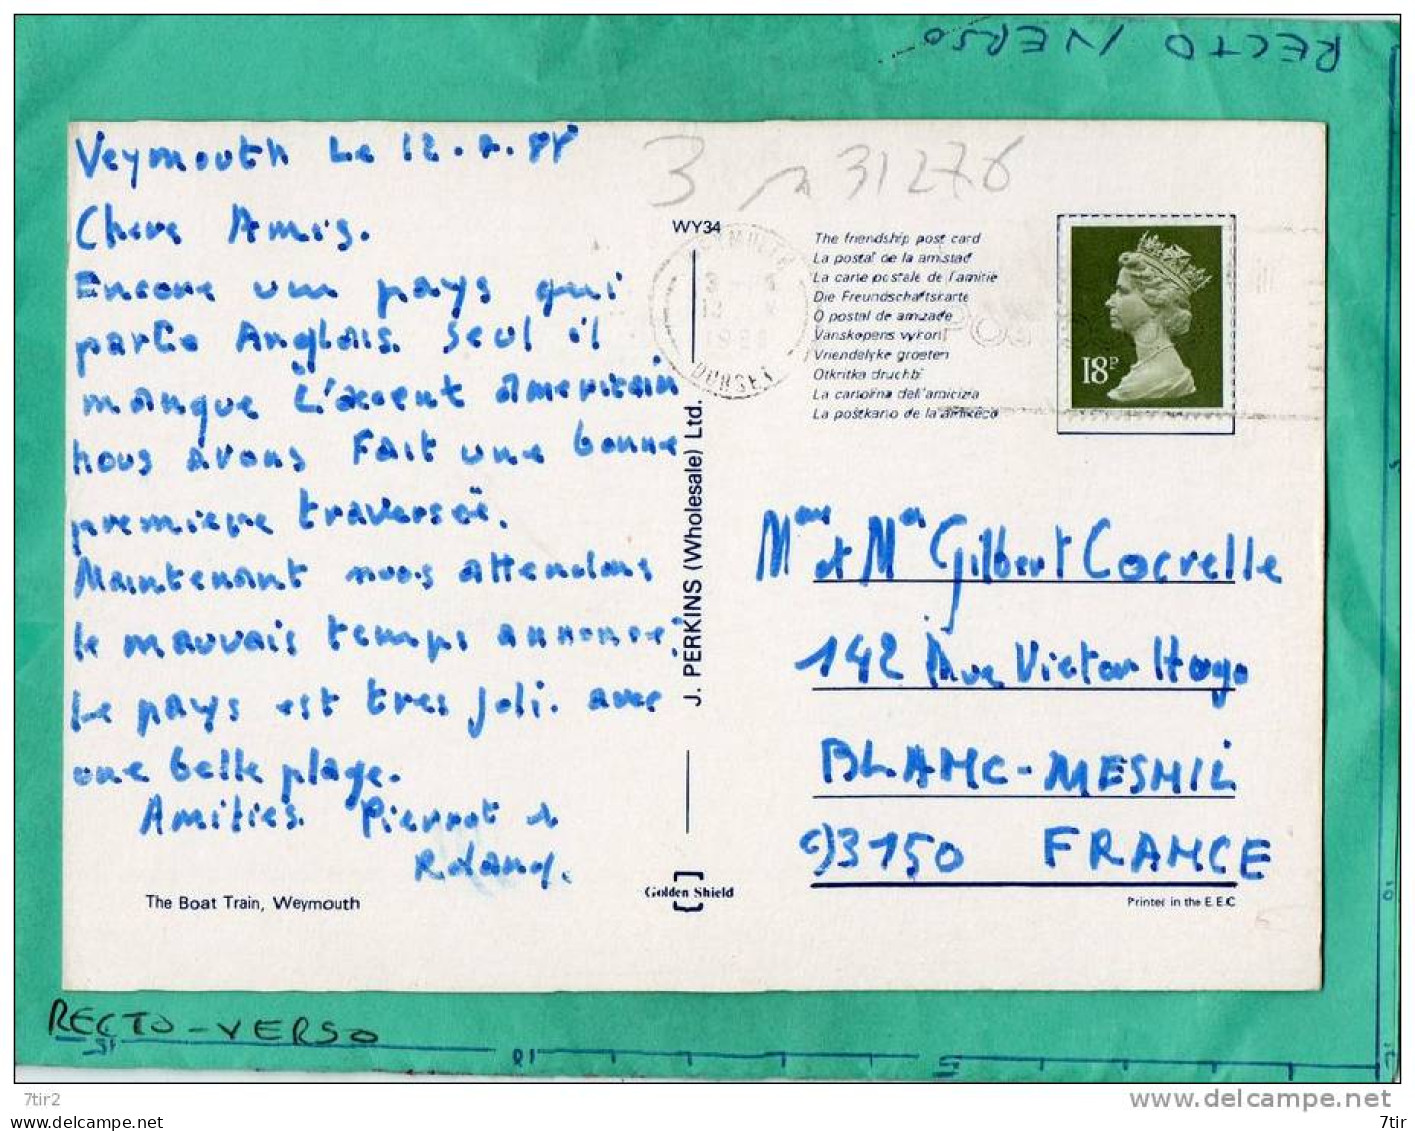 RECTO VERSO
Veymouth Le 12.8.88
Chers Amis.
Encore un pays qui
parle Anglais. Seul il
manque L'accent americain
nous avons Fait une bonne
premiere traversée.
Maintenant nous attendons
le mauvais temps annoncé.
Le pays est tres joli. avec
une belle plage.
Amitiés. Pierrot &
Roland.
The Boat Train, Weymouth
3 31276
WY34
J. PERKINS (Wholesale) Ltd.
Golden Shield
WEYMOUTH
1988
DORSET
The friendship post card
La postal de la amistad
La carte postale de l'amitie
Die Freundschaftskarte
O postal de amizade
Vanskapens vykort
Vriendelyke groeten
Otkritka druchbi
La cartolina dell'amicizia
La poŝtkarto de la amikeco
18P
Mme et Mr Gilbert Cocrelle
142 Rue Victor Hugo
BLANC-MESNIL
93150 FRANCE
Printed in the E.E.C
RECTO-VERSO
15
10
5
10
www.delcampe.net
7tir2
www.delcampe.net
7tir